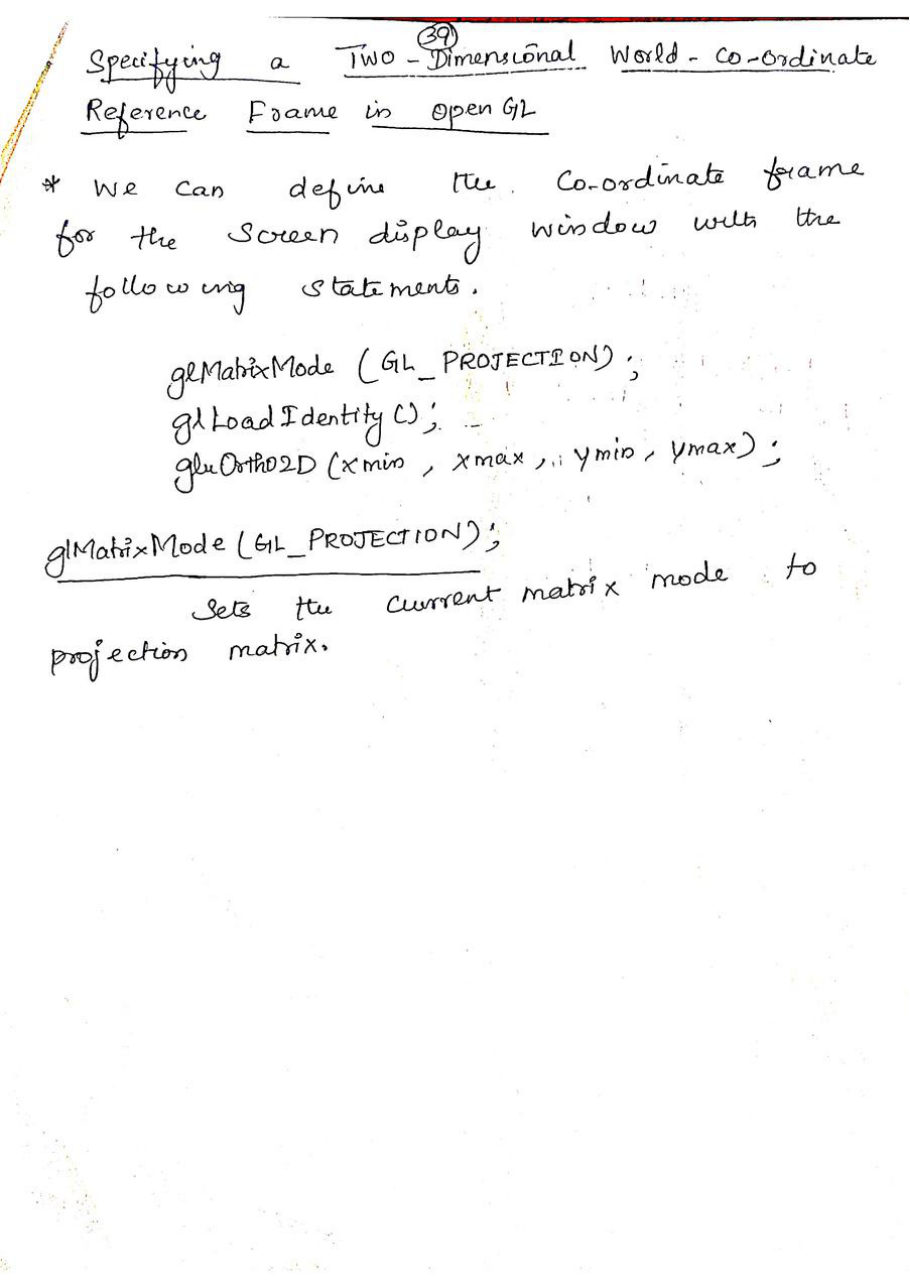 39
Specifying a Two-Dimensional World-Co-ordinate
Reference Frame in OpenGL
* We can define the Co-ordinate frame
for the Screen display window with the
following statements.
glMatrixMode (GL_PROJECTION);
glLoadIdentity();
gluOrtho2D (xmin, xmax, ymin, ymax);
glMatrixMode (GL_PROJECTION);
Sets the current matrix mode to
projection matrix.